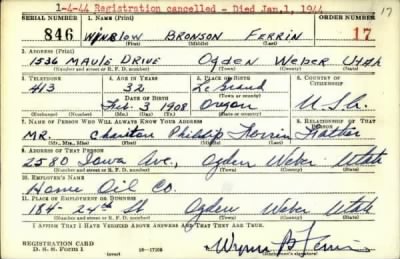 1-4-44 Registration cancelled - Died Jan. 1, 1944
17
SERIAL NUMBER 1. NAME (Print) ORDER NUMBER
846 WINSLOW BRONSON FERRIN 17
(First) (Middle) (Last)
2. ADDRESS (Print)
1536 MAULE DRIVE Ogden Weber Utah
(Number and street or R. F. D. number) (Town) (County) (State)
3. TELEPHONE 4. AGE IN YEARS 5. PLACE OF BIRTH 6. COUNTRY OF CITIZENSHIP
413 32 Le Grand
DATE OF BIRTH (Town or county)
Feb. 3 1908 Oregon U.S.A.
(Exchange) (Number) (Mo.) (Day) (Yr.) (State or country)
7. NAME OF PERSON WHO WILL ALWAYS KNOW YOUR ADDRESS 8. RELATIONSHIP OF THAT PERSON
MR. Phillip Ferrin Father
(Mr., Mrs., Miss) (First) (Middle) (Last)
9. ADDRESS OF THAT PERSON
2580 Iowa Ave., Ogden Weber Utah
(Number and street or R. F. D. number) (Town) (County) (State)
10. EMPLOYER'S NAME
Home Oil Co.
11. PLACE OF EMPLOYMENT OR BUSINESS
184- 24th St Ogden Weber Utah
(Number and street or R. F. D. number) (Town) (County) (State)
I AFFIRM THAT I HAVE VERIFIED ABOVE ANSWERS AND THAT THEY ARE TRUE.
REGISTRATION CARD
D. S. S. Form 1 16-17105 B Ferrin
(Registrant's signature)